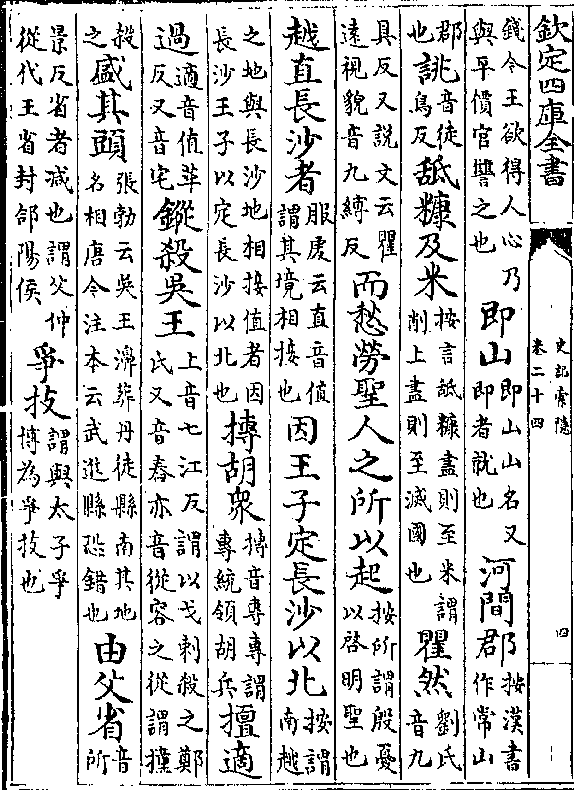 欽定四庫全書
史記索隱
卷二十四
四
錢今王欲得人心乃
與平價官讐之也
即山
即山山名又
即者就也
河間郡
按漢書
作常山
郡
也
誂
音徒
鳥反
舐糠及米
按言舐糠盡則至米謂
削上盡則至滅國也
瞿然
劉氏
音九
具反又説文云瞿
逺視貌音九縛反
而愁勞聖人之所以起
按所謂殷憂
以啓明聖也
越直長沙者
服虔云直音值
謂其境相接也
因王子定長沙以北
按謂
南越
之地與長沙地相接值者因
長沙王子以定長沙以北也
摶胡衆
摶音專專謂
專統領胡兵
擅適
過
適音值革
反又音宅
鏦殺吳王
上音七江反謂以戈刺殺之鄭
氏又音舂亦音從容之從謂撞
殺
之
盛其頭
張勃云吳王濞葬丹徒縣南其地
名相唐今注本云武進縣恐錯也
由父省
音
所
景反省者減也謂父仲
從代王省封郃陽侯
爭技
謂與太子爭
博為爭技也